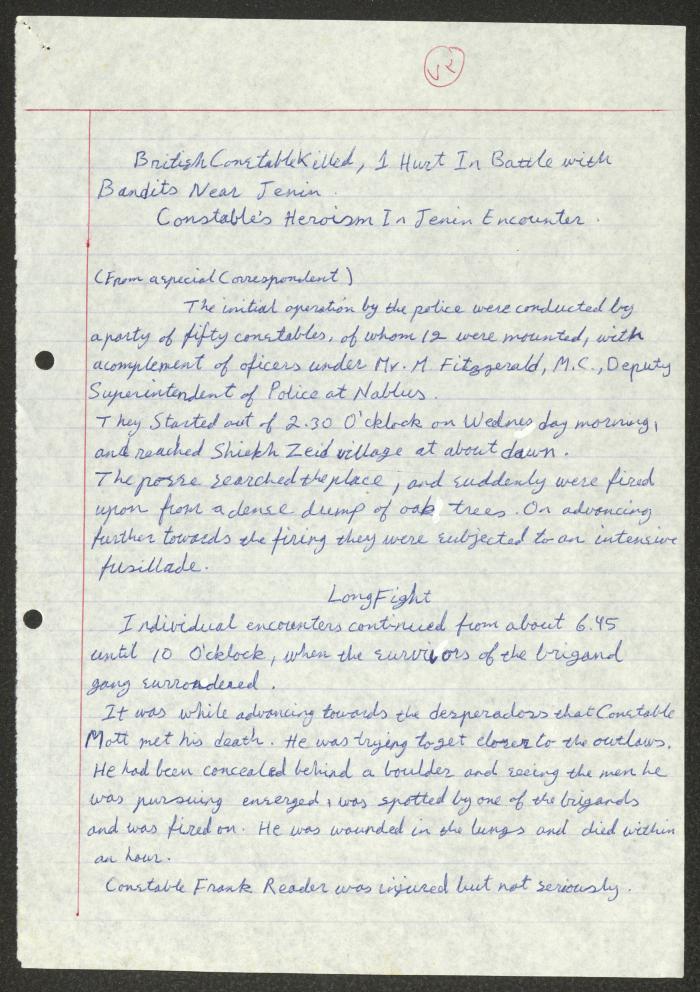 ٧٢
British Constable Killed, 1 Hurt In Battle with
Bandits Near Jenin.
Constable's Heroism In Jenin Encounter.
(From a special Correspondent)
The initial operation by the police were conducted by
a party of fifty constables, of whom 12 were mounted, with
a complement of oficers under Mr. M. Fitzgerald, M.C., Deputy
Superintendent of Police at Nablus.
They Started out of 2.30 O'cklock on Wednes day morning,
and reached Shiekh Zeid village at about dawn.
The posse searched the place, and suddenly were fired
upon from a dense dump of oak trees. On advancing
further towards the firing they were subjected to an intensive
fusillade.
Long Fight
Individual encounters continued from about 6.45
until 10 O'cklock, when the survivors of the brigand
gang surrondered.
It was while advancing towards the desperadoss that Constable
Mott met his death. He was trying to get closer to the outlaws.
He had been concealed behind a boulder and seeing the men he
was pursuing emerged, was spotted by one of the brigands
and was fired on. He was wounded in the lungs and died within
an hour.
Constable Frank Reader was injured but not seriously.